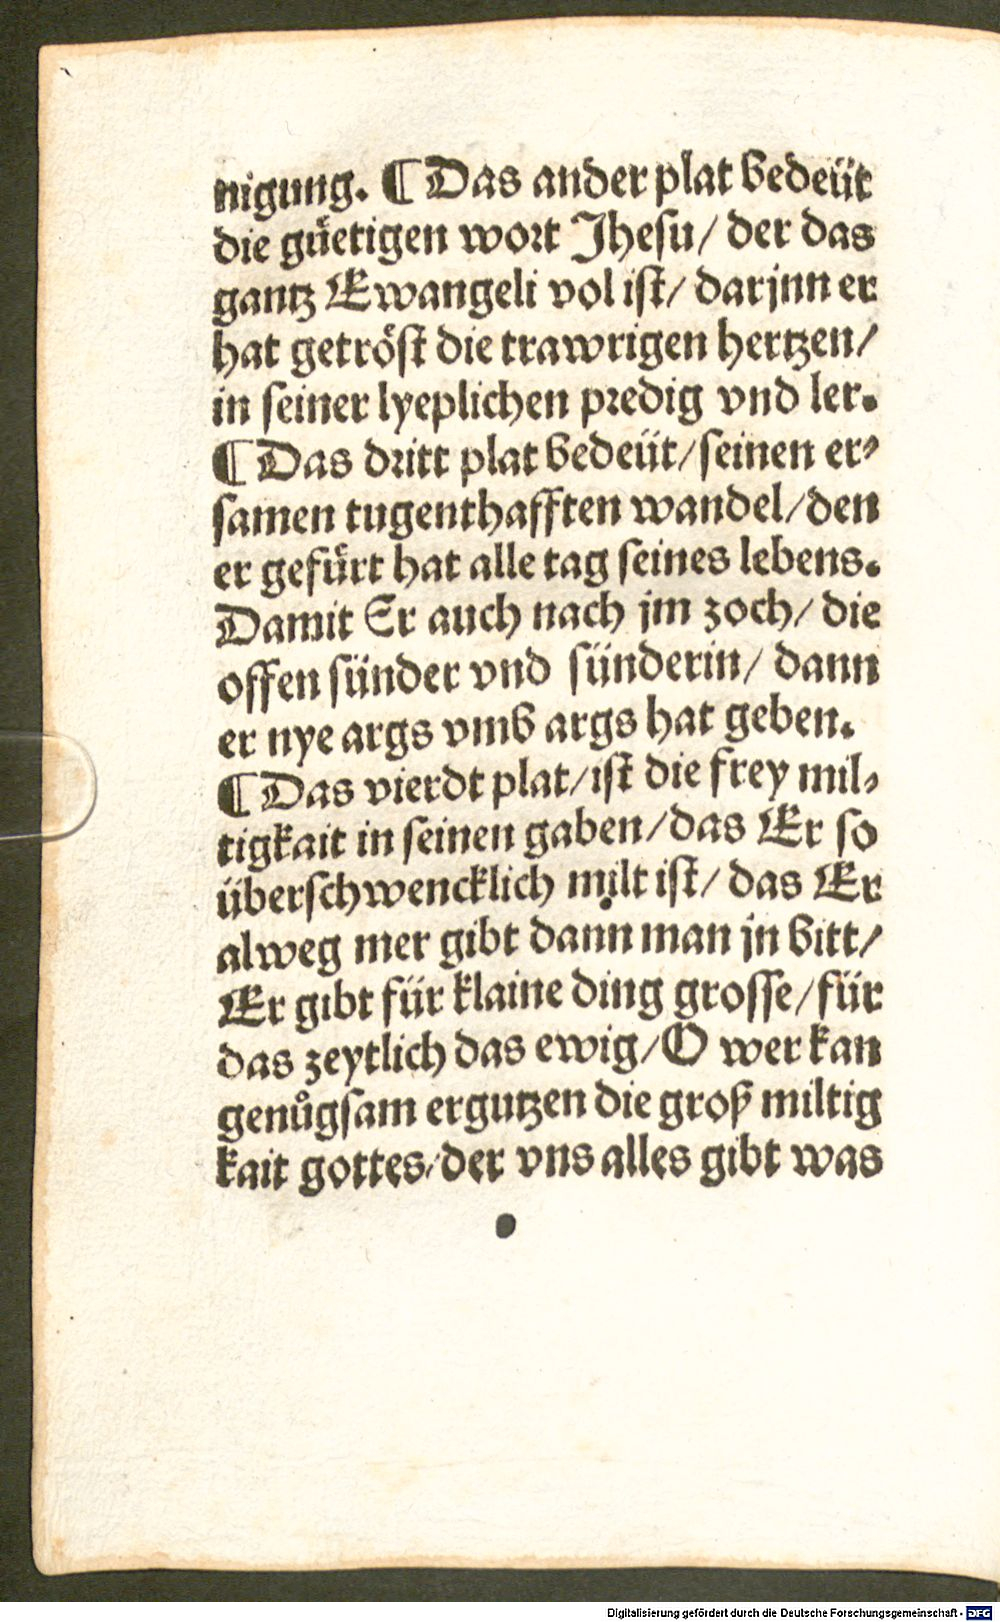 nigung. ¶ Das ander plat bedeüt
die gütigen wort Jhesu/ der das
gantz Ewangeli vol ist/ darjnn er
hat getröst die trawrigen hertzen/
in seiner lyeplichen predig vnd ler.
¶ Das dritt plat bedeüt/ seinen er⸗
samen tugenthafften wandel/ den
er gefürt hat alle tag seines lebens.
Damit Er auch nach jm zoch/ die
offen sünder vnd sünderin/ dann
er nye args vmb args hat geben.
¶ Das vierdt plat/ ist die frey mil⸗
tigkait in seinen gaben/ das Er so
überschwencklich milt ist/ das Er
alweg mer gibt dann man jn bitt/
Er gibt für klaine ding grosse/ für
das zeytlich das ewig/ O wer kan
genůgsam ergutzen die groß miltig
kait gottes/ der vns alles gibt was
Digitalisierung gefördert durch die Deutsche Forschungsgemeinschaft - DFG